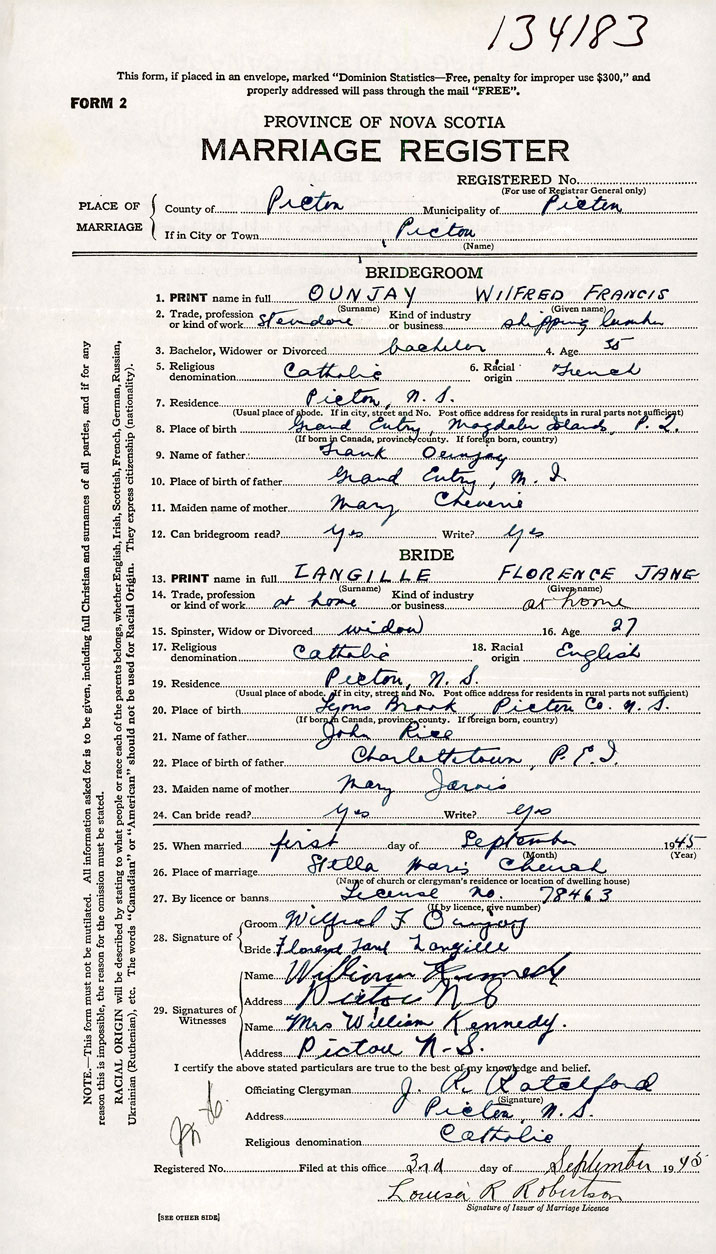 134183
This form, if placed in an envelope, marked "Dominion Statistics—Free, penalty for improper use $300," and
properly addressed will pass through the mail "FREE".
FORM 2
PROVINCE OF NOVA SCOTIA
MARRIAGE REGISTER
REGISTERED No.
(For use of Registrar General only)
PLACE OF MARRIAGE
County of Pictou Municipality of Pictou
If in City or Town Pictou
(Name)
BRIDEGROOM
1. PRINT name in full OUNJAY WILFRED FRANCIS
(Surname) (Given name)
2. Trade, profession or kind of work Stevdore Kind of industry or business shipping lumber
3. Bachelor, Widower or Divorced bachelor 4. Age 35
5. Religious denomination Catholic 6. Racial origin French
7. Residence Pictou, N. S.
(Usual place of abode. If in city, street and No. Post office address for residents in rural parts not sufficient)
8. Place of birth Grand Entry, Magdalen Islands, P. Q.
(If born in Canada, province, county. If foreign born, country)
9. Name of father Frank Ounjay
10. Place of birth of father Grand Entry, M. I.
11. Maiden name of mother Mary Cheverie
12. Can bridegroom read? Yes Write? Yes
BRIDE
13. PRINT name in full LANGILLE FLORENCE JANE
(Surname) (Given name)
14. Trade, profession or kind of work at home Kind of industry or business at home
15. Spinster, Widow or Divorced widow 16. Age 27
17. Religious denomination Catholic 18. Racial origin English
19. Residence Pictou, N. S.
(Usual place of abode. If in city, street and No. Post office address for residents in rural parts not sufficient)
20. Place of birth Lyons Brook, Pictou Co. N. S.
(If born in Canada, province, county. If foreign born, country)
21. Name of father John Rice
22. Place of birth of father Charlottetown, P. E. I.
23. Maiden name of mother Mary Jarvis
24. Can bride read? Yes Write? Yes
25. When married first day of September 1945
(Month) (Year)
26. Place of marriage Stella Maris Church
(Name of church or clergyman's residence or location of dwelling house)
27. By licence or banns License no. 78463
(If by licence, give number)
28. Signature of
Groom Wilfred F Ounjay
Bride Florence Jane Langille
29. Signatures of Witnesses
Name William Kennedy
Address Pictou N S
Name Mrs William Kennedy.
Address Pictou N-S.
I certify the above stated particulars are true to the best of my knowledge and belief.
Officiating Clergyman J. R.
(Signature)
Address Pictou, N. S.
Religious denomination Catholic
Registered No. Filed at this office 3rd day of September 1945
Louisa R Robertson
Signature of Issuer of Marriage Licence
[SEE OTHER SIDE]
NOTE.—This form must not be mutilated. All information asked for is to be given, including full Christian and surnames of all parties, and if for any
reason this is impossible, the reason for the omission must be stated.
RACIAL ORIGIN will be described by stating to what people or race each of the parents belongs, whether English, Irish, Scottish, French, German, Russian,
Ukrainian (Ruthenian), etc. The words "Canadian" or "American" should not be used for Racial Origin. They express citizenship (nationality).